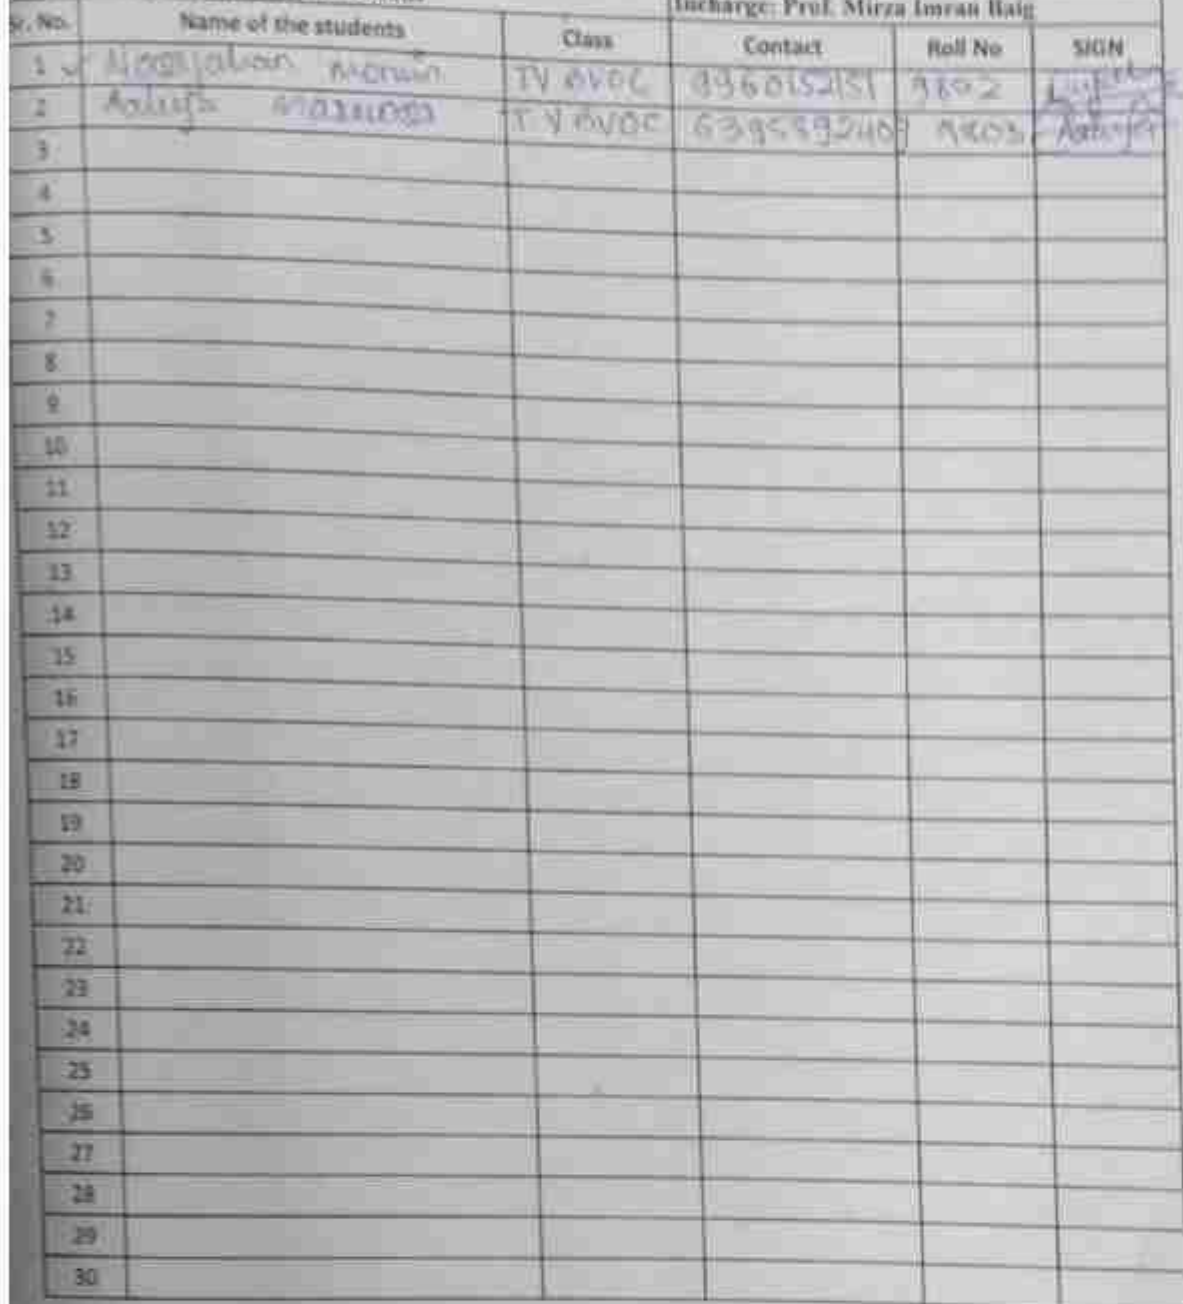 Incharge: Prof. Mirza Imran Baig
Sr. No. Name of the students Class Contact Roll No SIGN
1 TY BVOC 9960152151 9802
2 TY BVOC 9803
3
4
5
6
7
8
9
10
11
12
13
14
15
16
17
18
19
20
21
22
23
24
25
26
27
28
29
30